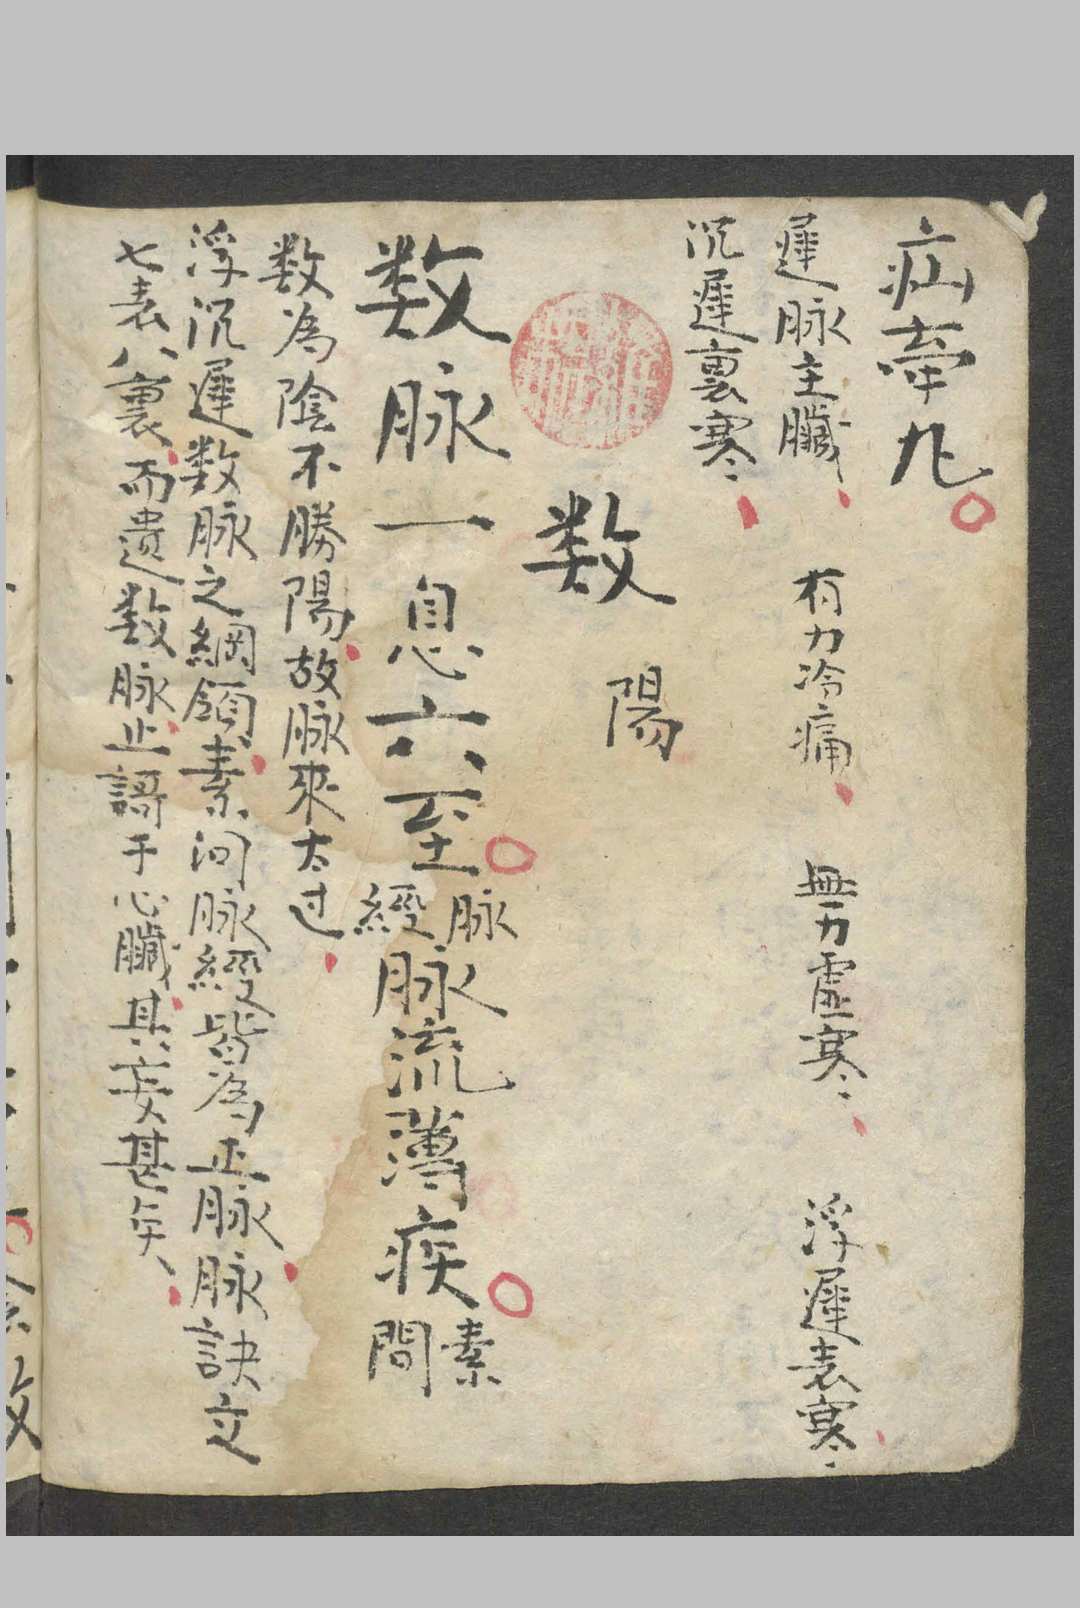 疝牽丸
遲脉主臟 有力冷痛 無力虛寒 浮遲表寒
沉遲裏寒
数 陽
数脉一息六至脉經脉流薄疾素問
数為陰不勝陽故脉來太过
浮沉遲数脉之綱領素问脉經皆為正脉脉訣立
七表八裏而遗数脉止謌于心臟其妄甚矣